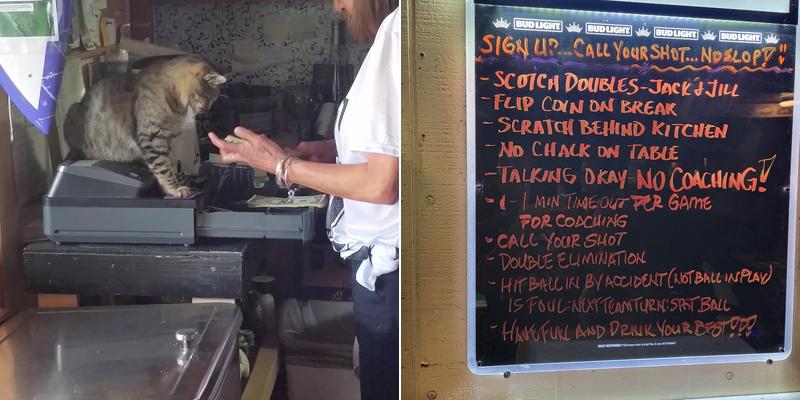 BUD LIGHT BUD LIGHT BUD LIGHT BUD LIGHT
SIGN UP?...CALL YOUR SHOT...NO SLOP!!
- SCOTCH DOUBLES - JACK & JILL
- FLIP COIN ON BREAK
- SCRATCH BEHIND KITCHEN
- NO CHALK ON TABLE
- TALKING OKAY - NO COACHING!
- 1 - 1 MIN TIMEOUT PER GAME
FOR COACHING
- CALL YOUR SHOT
- DOUBLE ELIMINATION
- HIT BALL IN BY ACCIDENT (NOT BALL IN PLAY)
IS FOUL: NEXT TEAM TURN: SPOT BALL
- HAVE FUN AND DRINK YOUR BEST!!!